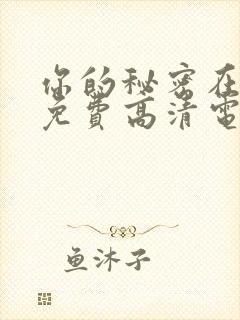 你的秘密在
免费高清電
鱼沐子